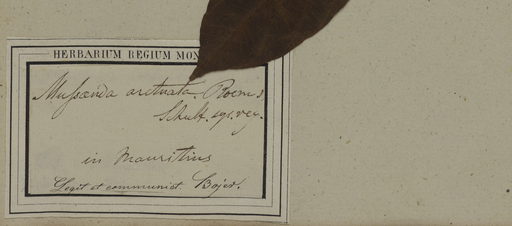 HERBARIUM REGIUM MON
Mussaenda arcuata. Roem. &
Schult. sys. veg.
in Mauritius
Legit et communist. Bojer.